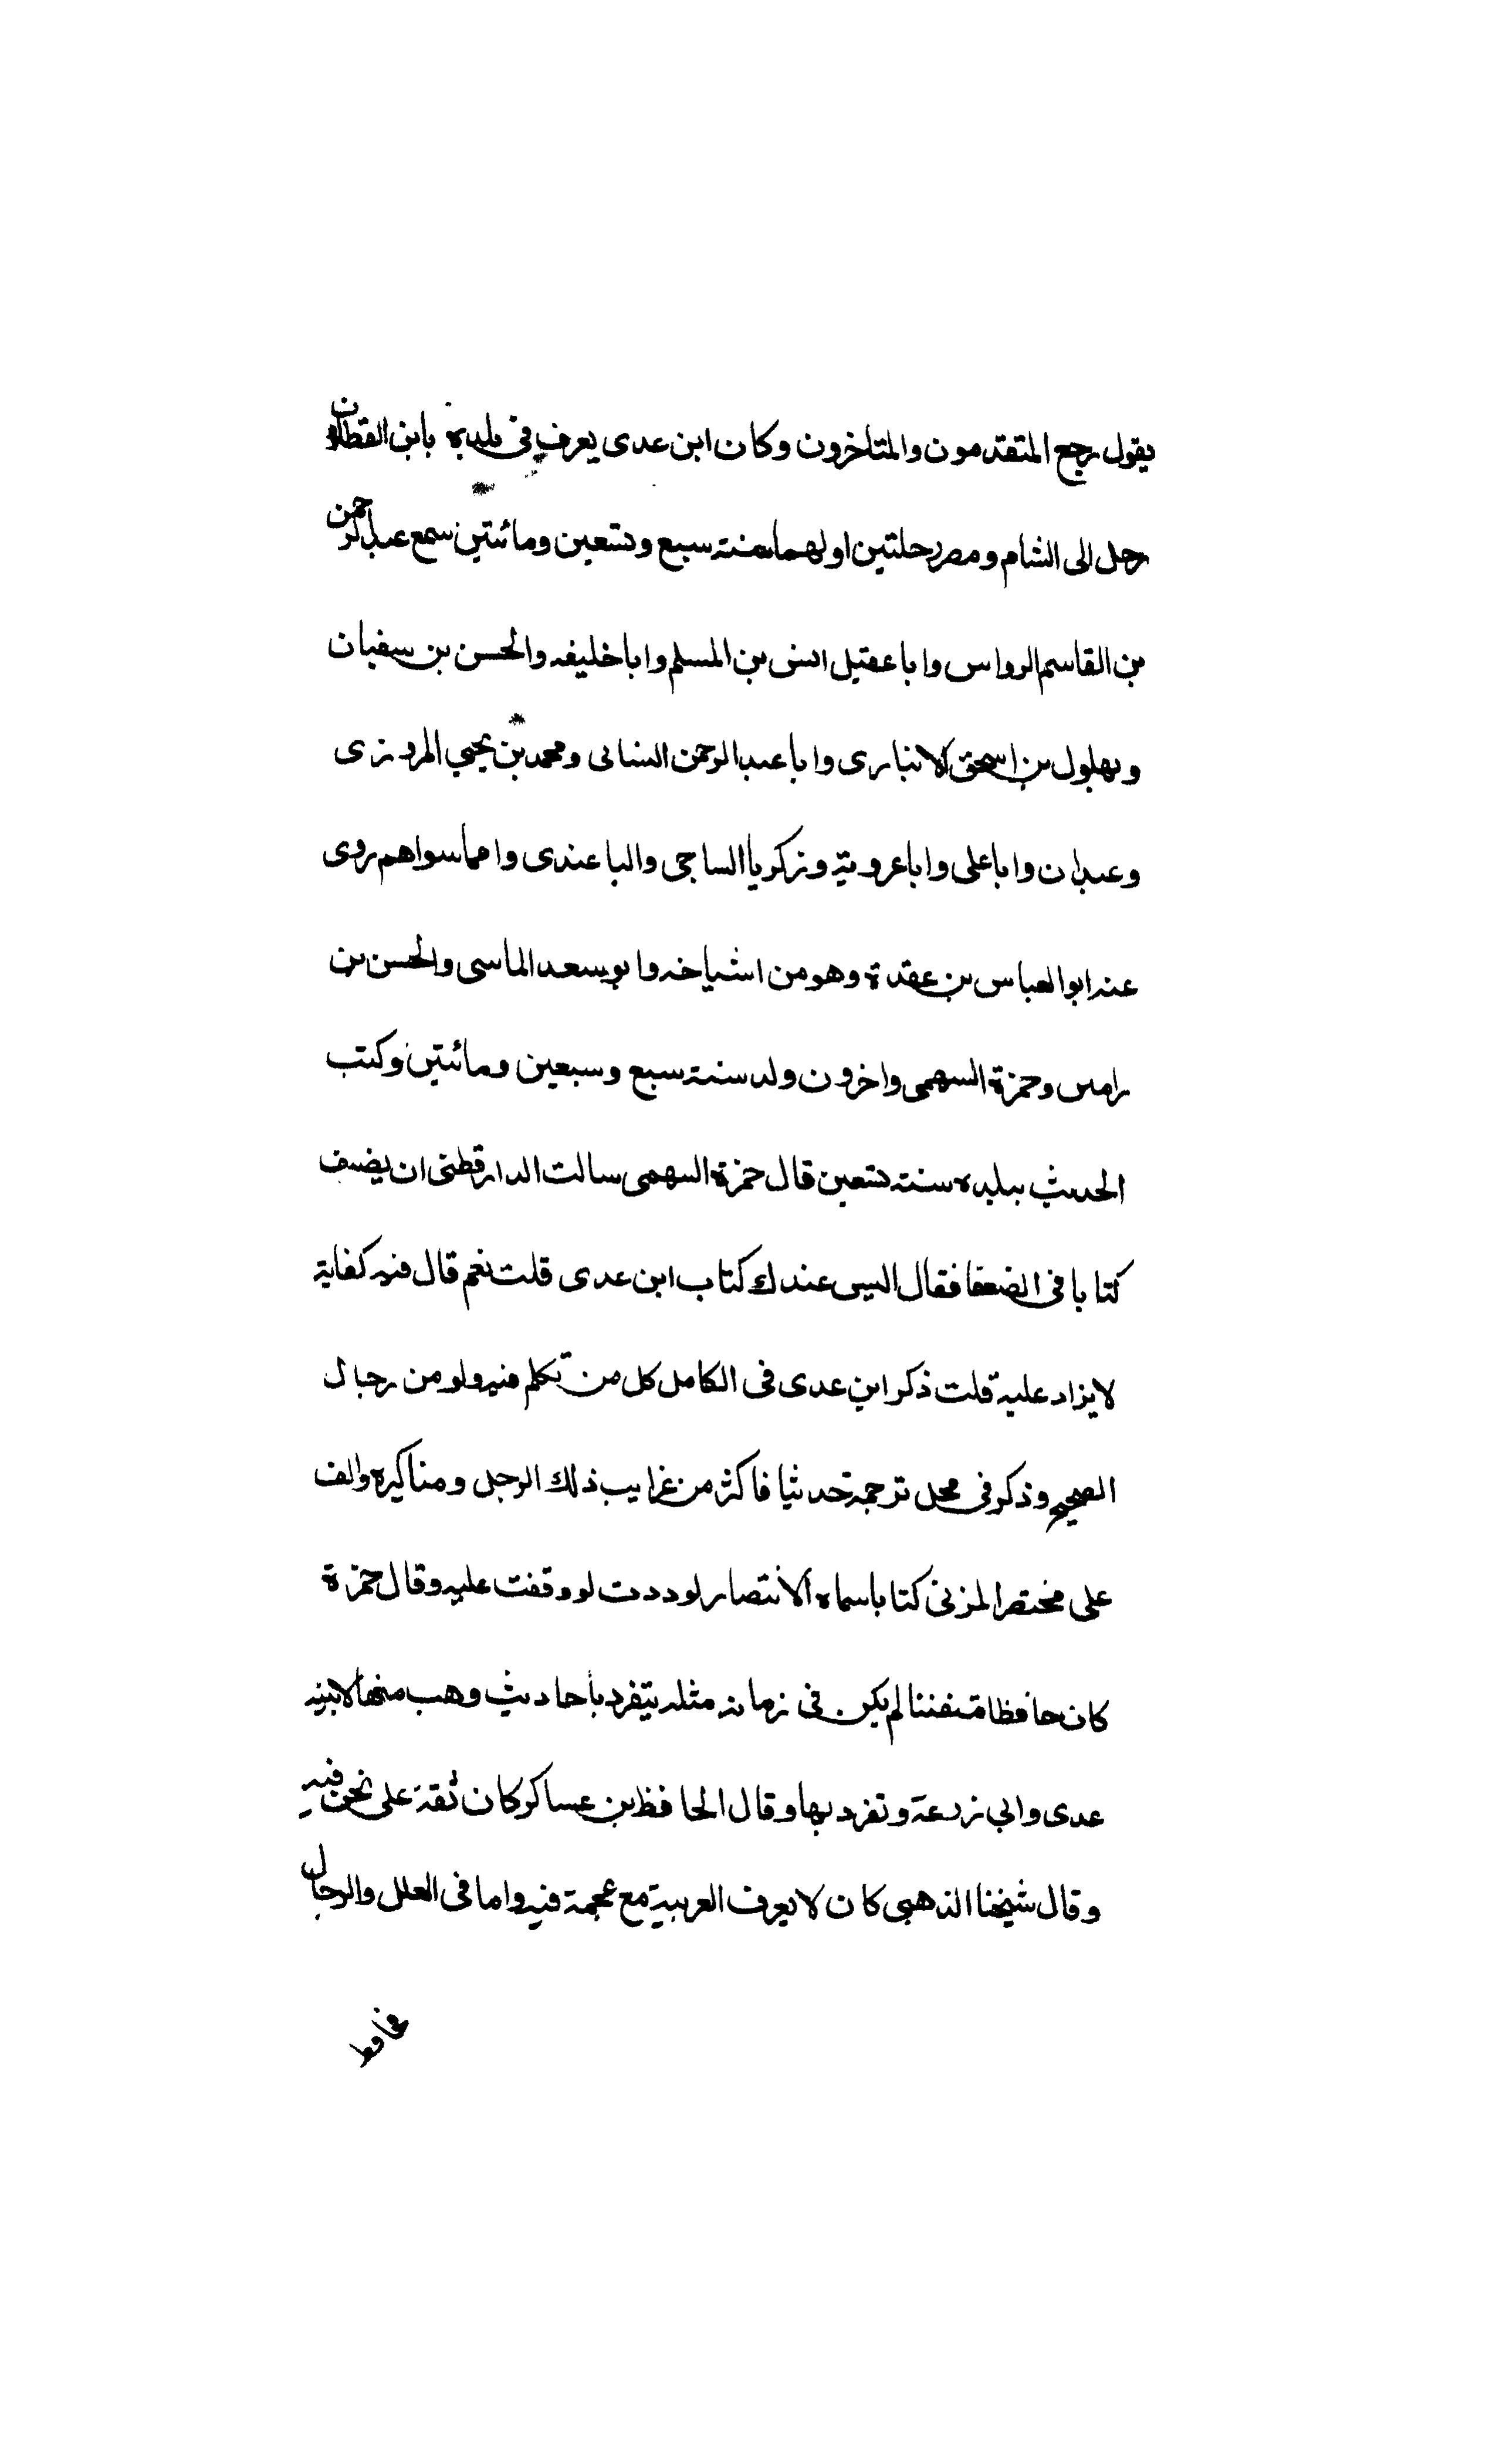 يقول رجع المتقدمون والمتاخرون وكان ابن عدى يعرف فى بلده بابن القطان
رحل الى الشام ومصر رحلتين اولهما سنة سبع وتسعين ومائتين سمع عبد الرحمن
بن القاسم الرواس وابا عقيل انس بن المسلم وابا خليفه والحسن بن سفيان
وبهلول بن اسحق الانبارى وابا عبد الرحمن النسائى ومحمد بن يحيي المروزى
وعبدان وابا على وابا عروبة وزكريا الساجى والباغندى وامما سواهم روى
عنه ابو العباس بن عقدة وهو من اشياخه وابو سعد الماسى والحسن بن
رامين وحمزة السهمى واخرون ولد سنة سبع وسبعين ومائتين وكتب
الحديث ببلده سنة تسعين قال حمزة السهمى سالت الدارقطنى ان يصنف
كتابا فى الضعفا فقال اليس عندك كتاب ابن عدى قلت نعم قال فيه كفاية
لا يزاد عليه قلت ذكر ابن عدى فى الكامل كل من تكلم فيه ولو من رجال
الصحيح وذكر فى محل ترجمة حديثا فاكثر من غرايب ذلك الرجل ومناكيره والف
على مختصر المزنى كتابا سماه الانتصار لوددت لو وقفت عليه وقال حمزة
كان حافظا متفننا لم يكن فى زمانه مثله يتفرد بأحاديث وهب منها لابنيه
عدى وابى زرعة وتفرد بها وقال الحافظ بن عساكر كان ثقة على نحن فيه
وقال شيخنا الذهبى كان لا يعرف العربية مع عجمة فيه واما فى العلل والرجال
فحافظ